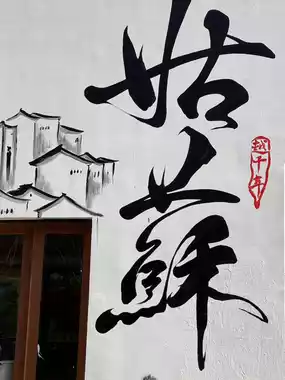 姑蘇
越千年